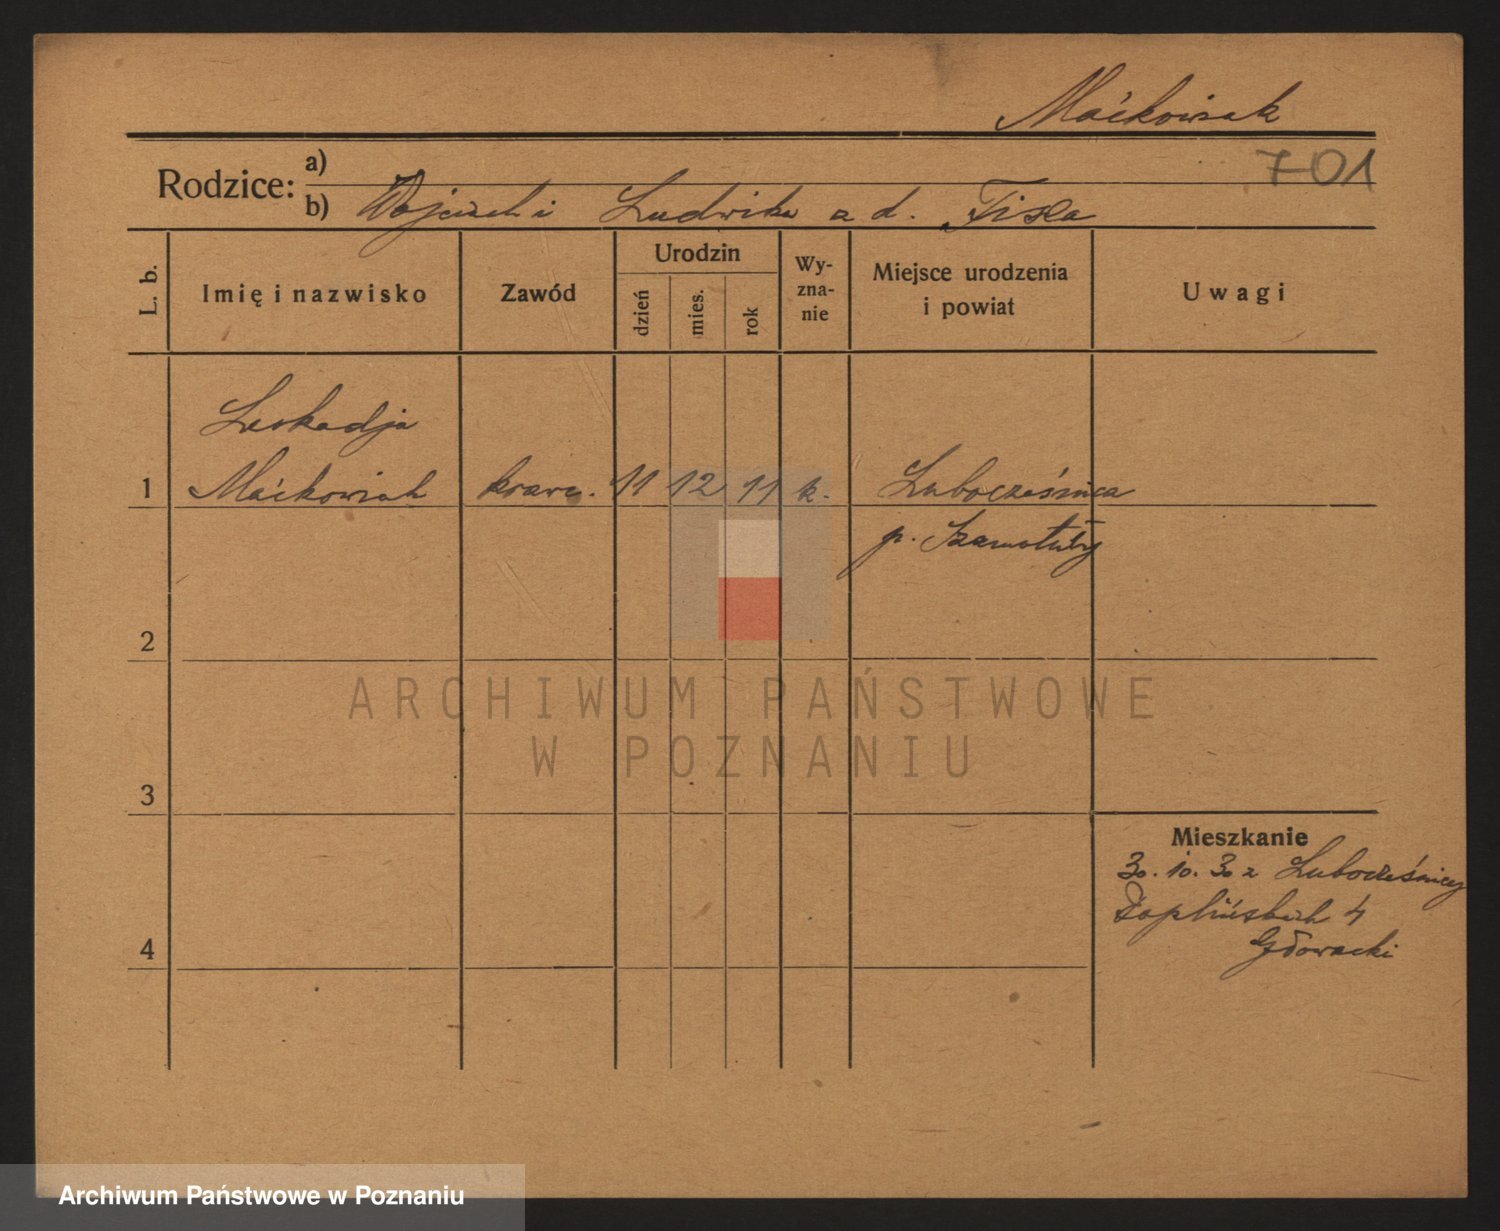 Maćkowiak
701
Rodzice: a)
b) Wojciech i Ludwika z d. Tisla
L. b.
Imię i nazwisko
Zawód
Urodzin
dzień
mies.
rok
Wy-
zna-
nie
Miejsce urodzenia
i powiat
Uwagi
Leokadja
1 Maćkowiak krawc. 11 12 11 k. Lubocześnica
p. Szamotuły
2
ARCHIWUM PAŃSTWOWE
W POZNANIU
3
Mieszkanie
30. 10. 30 z Lubocześnicy
4
Głowacki
4
Archiwum Państwowe w Poznaniu